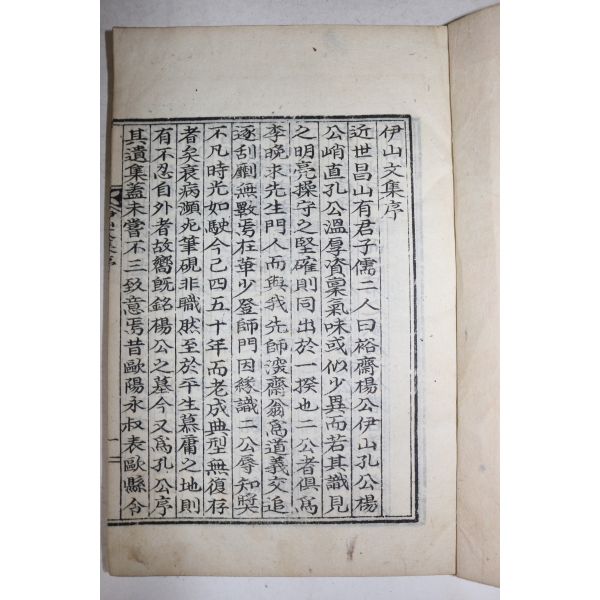 伊山文集序
近世昌山有君子儒二人曰裕齋楊公伊山孔公楊
公峭直孔公溫厚資稟氣味或似少異而若其識見
之明亮操守之堅確則同出於一揆也二公者俱爲
李晚求先生門人而與我先師深齋翁爲道義交追
逐刮劘無斁焉在華少登師門因緣識二公辱知奬
不凡時光如駛今已四五十年而老成典型無復存
者矣衰病瀕死筆硯非職肰至於平生慕庸之地則
有不忍自外者故嚮旣銘楊公之墓今又爲孔公序
其遺集蓋未嘗不三致意焉昔歐陽永叔表歐縣令